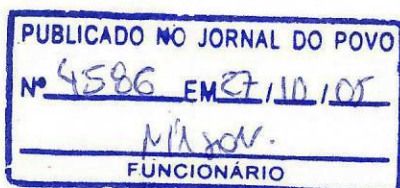 PUBLICADO NO JORNAL DO POVO
Nº 4586 EM 27/10/05
FUNCIONÁRIO